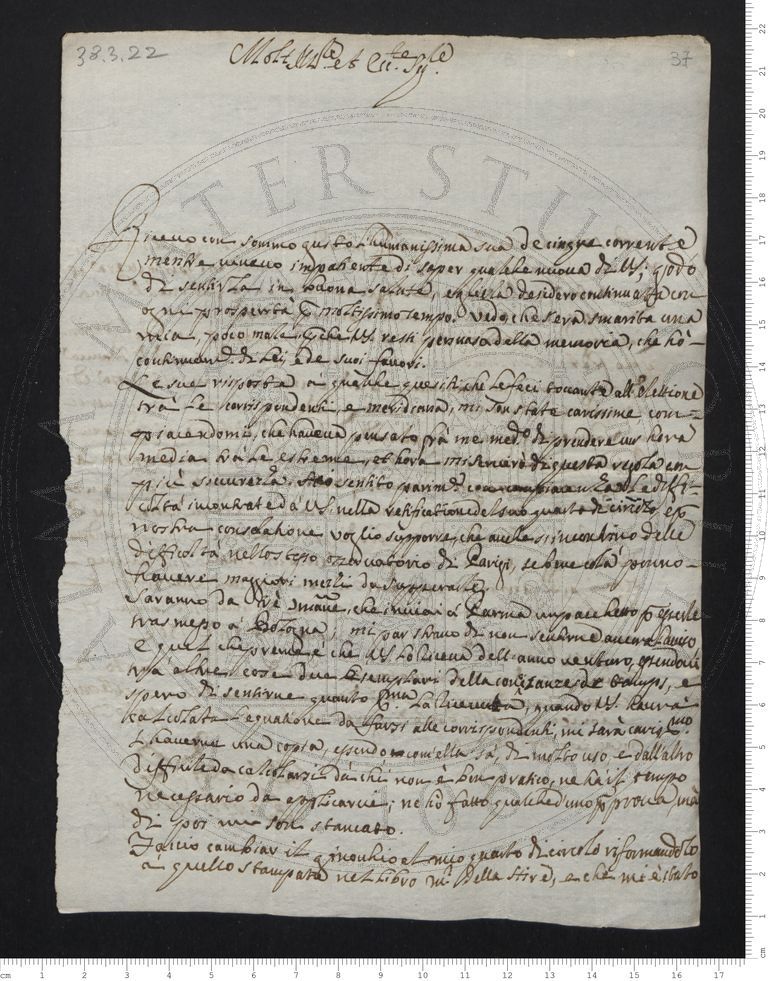 38.3.22
37
Molt' Ill.re et Ecc.te Sig.re
Ricevo con sommo gusto l'humanissima sua de cinque corrente
mentre vivevo impatiente di saper qualche nuova di VS; godo
di sentirla in buona salute, e questa desidero continuata con
ogni prosperità p moltissimo tempo. Vedo che s'era smarita una
mia, poco male, che VS resti persuasa della memoria, che hò
continuam.te di Lei, e de suoi favori.
Le sue risposte a qualche quesiti, che le feci toccante all'Elettione
trà le corrispondenti, e meridiana, mi son state carissime com=
piacendomi, che havevo pensato frà me med.o di prendere un hora
media trà le estreme, et hora mi servirò di questa regola con
più sicurezza. Hò sentito parim.te le diffi=
coltà incontrate dà VS. nella retificatione del suo quarto di circolo, e p
nostra consolatione voglio supporre, che anche si incontrino delle
difficoltà nello stesso osservatorio di Parigi, se bene colà ponno
havere maggiori mezi da superarle.
Saranno da trè sett.mane, che inviai à Parma un pacchetto p esserle
trasmesso à Bologna; mi par strano di non sentirne ancora l'aviso
e quel che preme, è che VS
trà altre cose due Esemplari della des temps, e
spero di sentirne quanto p.ma la ricevuta, quando VS. havrà
calcolata l'equatione da farsi alle corrispondenti, mi sarà cariss.mo
l'haverne una copia, essendo com'ella sà, di molto uso, e dall'altro
difficile da calcolarsi dà chi non è ben pratico, ne hà il tempo
necessario da applicarvi; ne hò fatto qualched'uno p prova, mà
di poi mi son stancato.
Faccio cambiar il ginochio al mio quarto di circolo riformandolo
à quello stampato nel Libro di M.r Della Hire, e che mi è stato